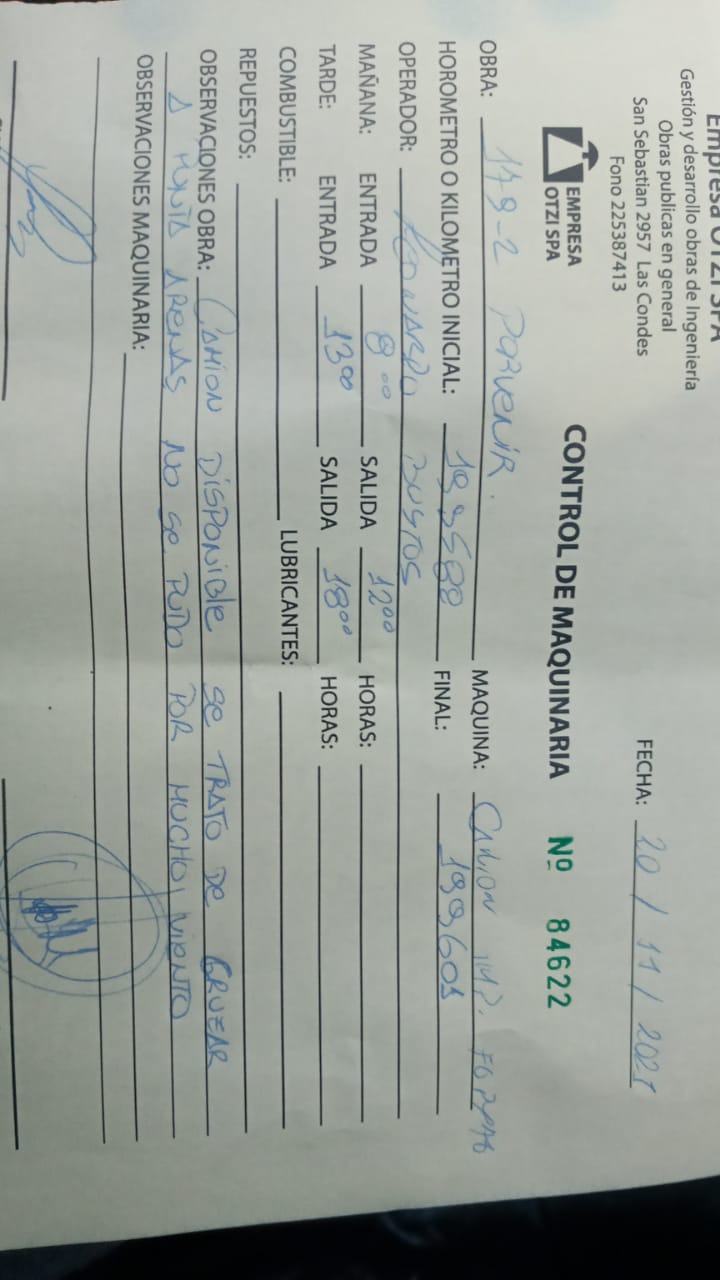 Empresa OTZI SPA
Gestión y desarrollo obras de Ingeniería
Obras publicas en general
San Sebastian 2957 Las Condes
Fono 225387413
FECHA: 20 / 11 / 2021
EMPRESA
OTZI SPA
CONTROL DE MAQUINARIA Nº 84622
OBRA: 179-2 PORVENIR.
MAQUINA: CAMION
HOROMETRO O KILOMETRO INICIAL: 199588 FINAL: 199601
OPERADOR: LEONARDO BUSTOS
MAÑANA: ENTRADA 8 00 SALIDA 12 00 HORAS:
TARDE: ENTRADA 13 00 SALIDA 18 00 HORAS:
COMBUSTIBLE: LUBRICANTES:
REPUESTOS:
OBSERVACIONES OBRA: CAMION DISPONIBLE SE TRATO DE CRUZAR
A PUNTA ARENAS NO SE PUDO POR MUCHO VIENTO
OBSERVACIONES MAQUINARIA: